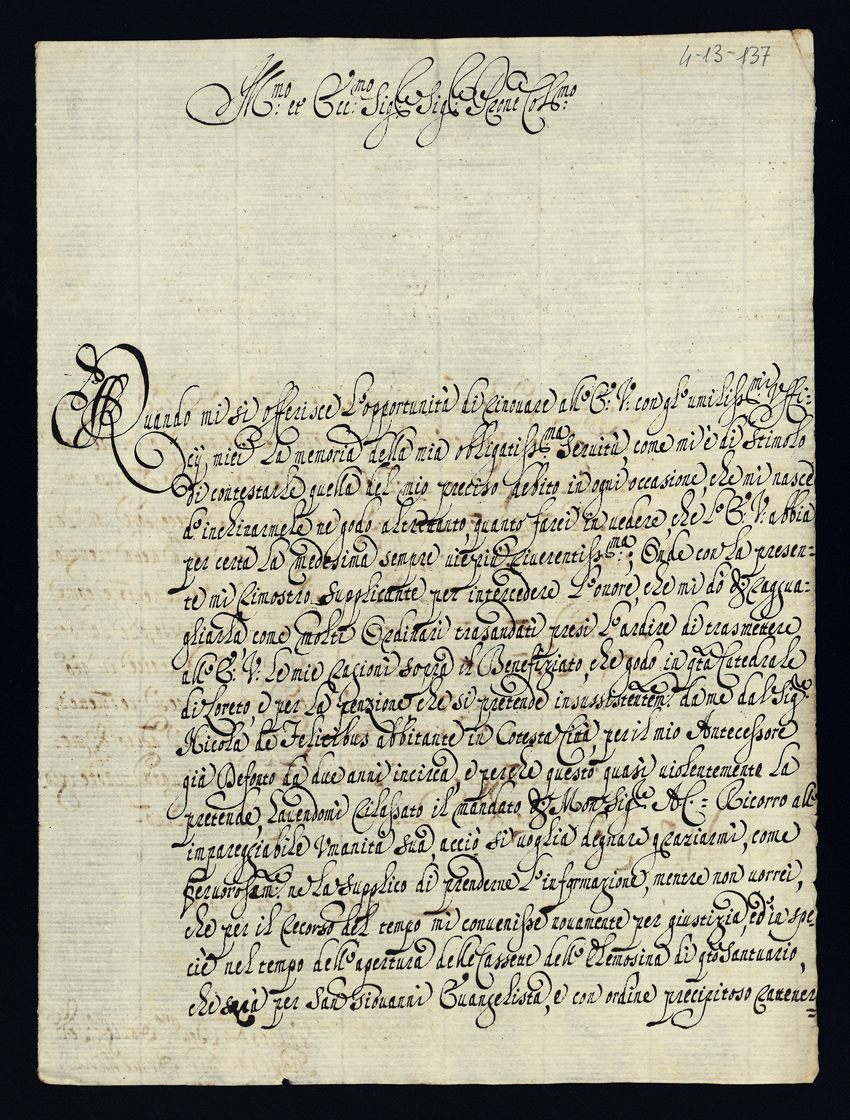 4-13-137
Ill.mo et Ecc.mo Sig.re Sig.re Prone Col.mo
Quando mi si offerisce l'opportunità di rinovare all'E: V: con gl'umiliss.mi Uffi:
cij miei la memoria della mia obbligatiss.ma Servitù come mi è di stimolo
di contestarle quella del mio preciso debito in ogni occasione, che mi nasce
d'inchinarmele ne godo altrettanto, quanto farei in vedere, che l'E: V: abbia
per certa la medesima sempre vie più riverentiss.ma; Onde con la presen=
te mi rimostro supplicante per intercedere l'onore, che mi dò di raggua=
gliarla come molti Ordinari trasandati presi l'ardire di trasmettere
all'E: V: le mie ragioni sopra il Benefiziato, che godo in q.ta Catedrale
di Loreto, e per la penzione che si pretende insussistentem.e da me dal Sig.r
Nicola de Felicibus abbitante in Cotesta Città, per il mio Antecessore
già Defonto da due anni incirca, e perche questo quasi violentemente la
pretende, havendomi rilassato il mandato di Monsig.re AC.= Ricorro all'
impareggiabile Vmanità sua, acciò si voglia degnare graziarmi, come
fervorosam.e ne la supplico di prenderne l'informazione, mentre non vorrei,
che per il recorso del tempo mi convenisse novamente per giustizia, ed in spe=
cie nel tempo dell'apertura delle Cassette dell'Elemosina di q.to Santuario,
che sarà per San Giovanni Evangelista, e con ordine precipitoso rattener=